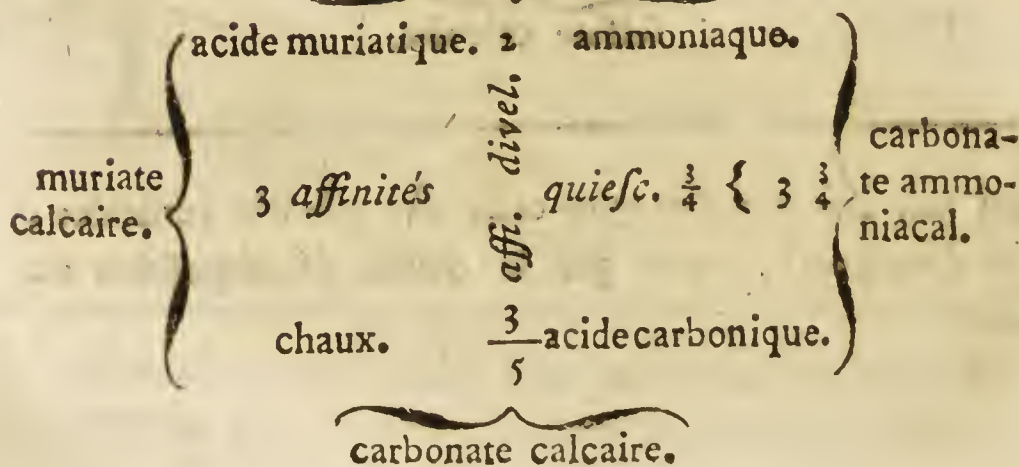 acide muriatique. 2 ammoniaque.
muriate calcaire.
3 affinités
affi. divel.
quieſc. 3/4 { 3 3/4
carbona-
te ammo-
niacal.
chaux. 3 acide carbonique.
5
carbonate calcaire.